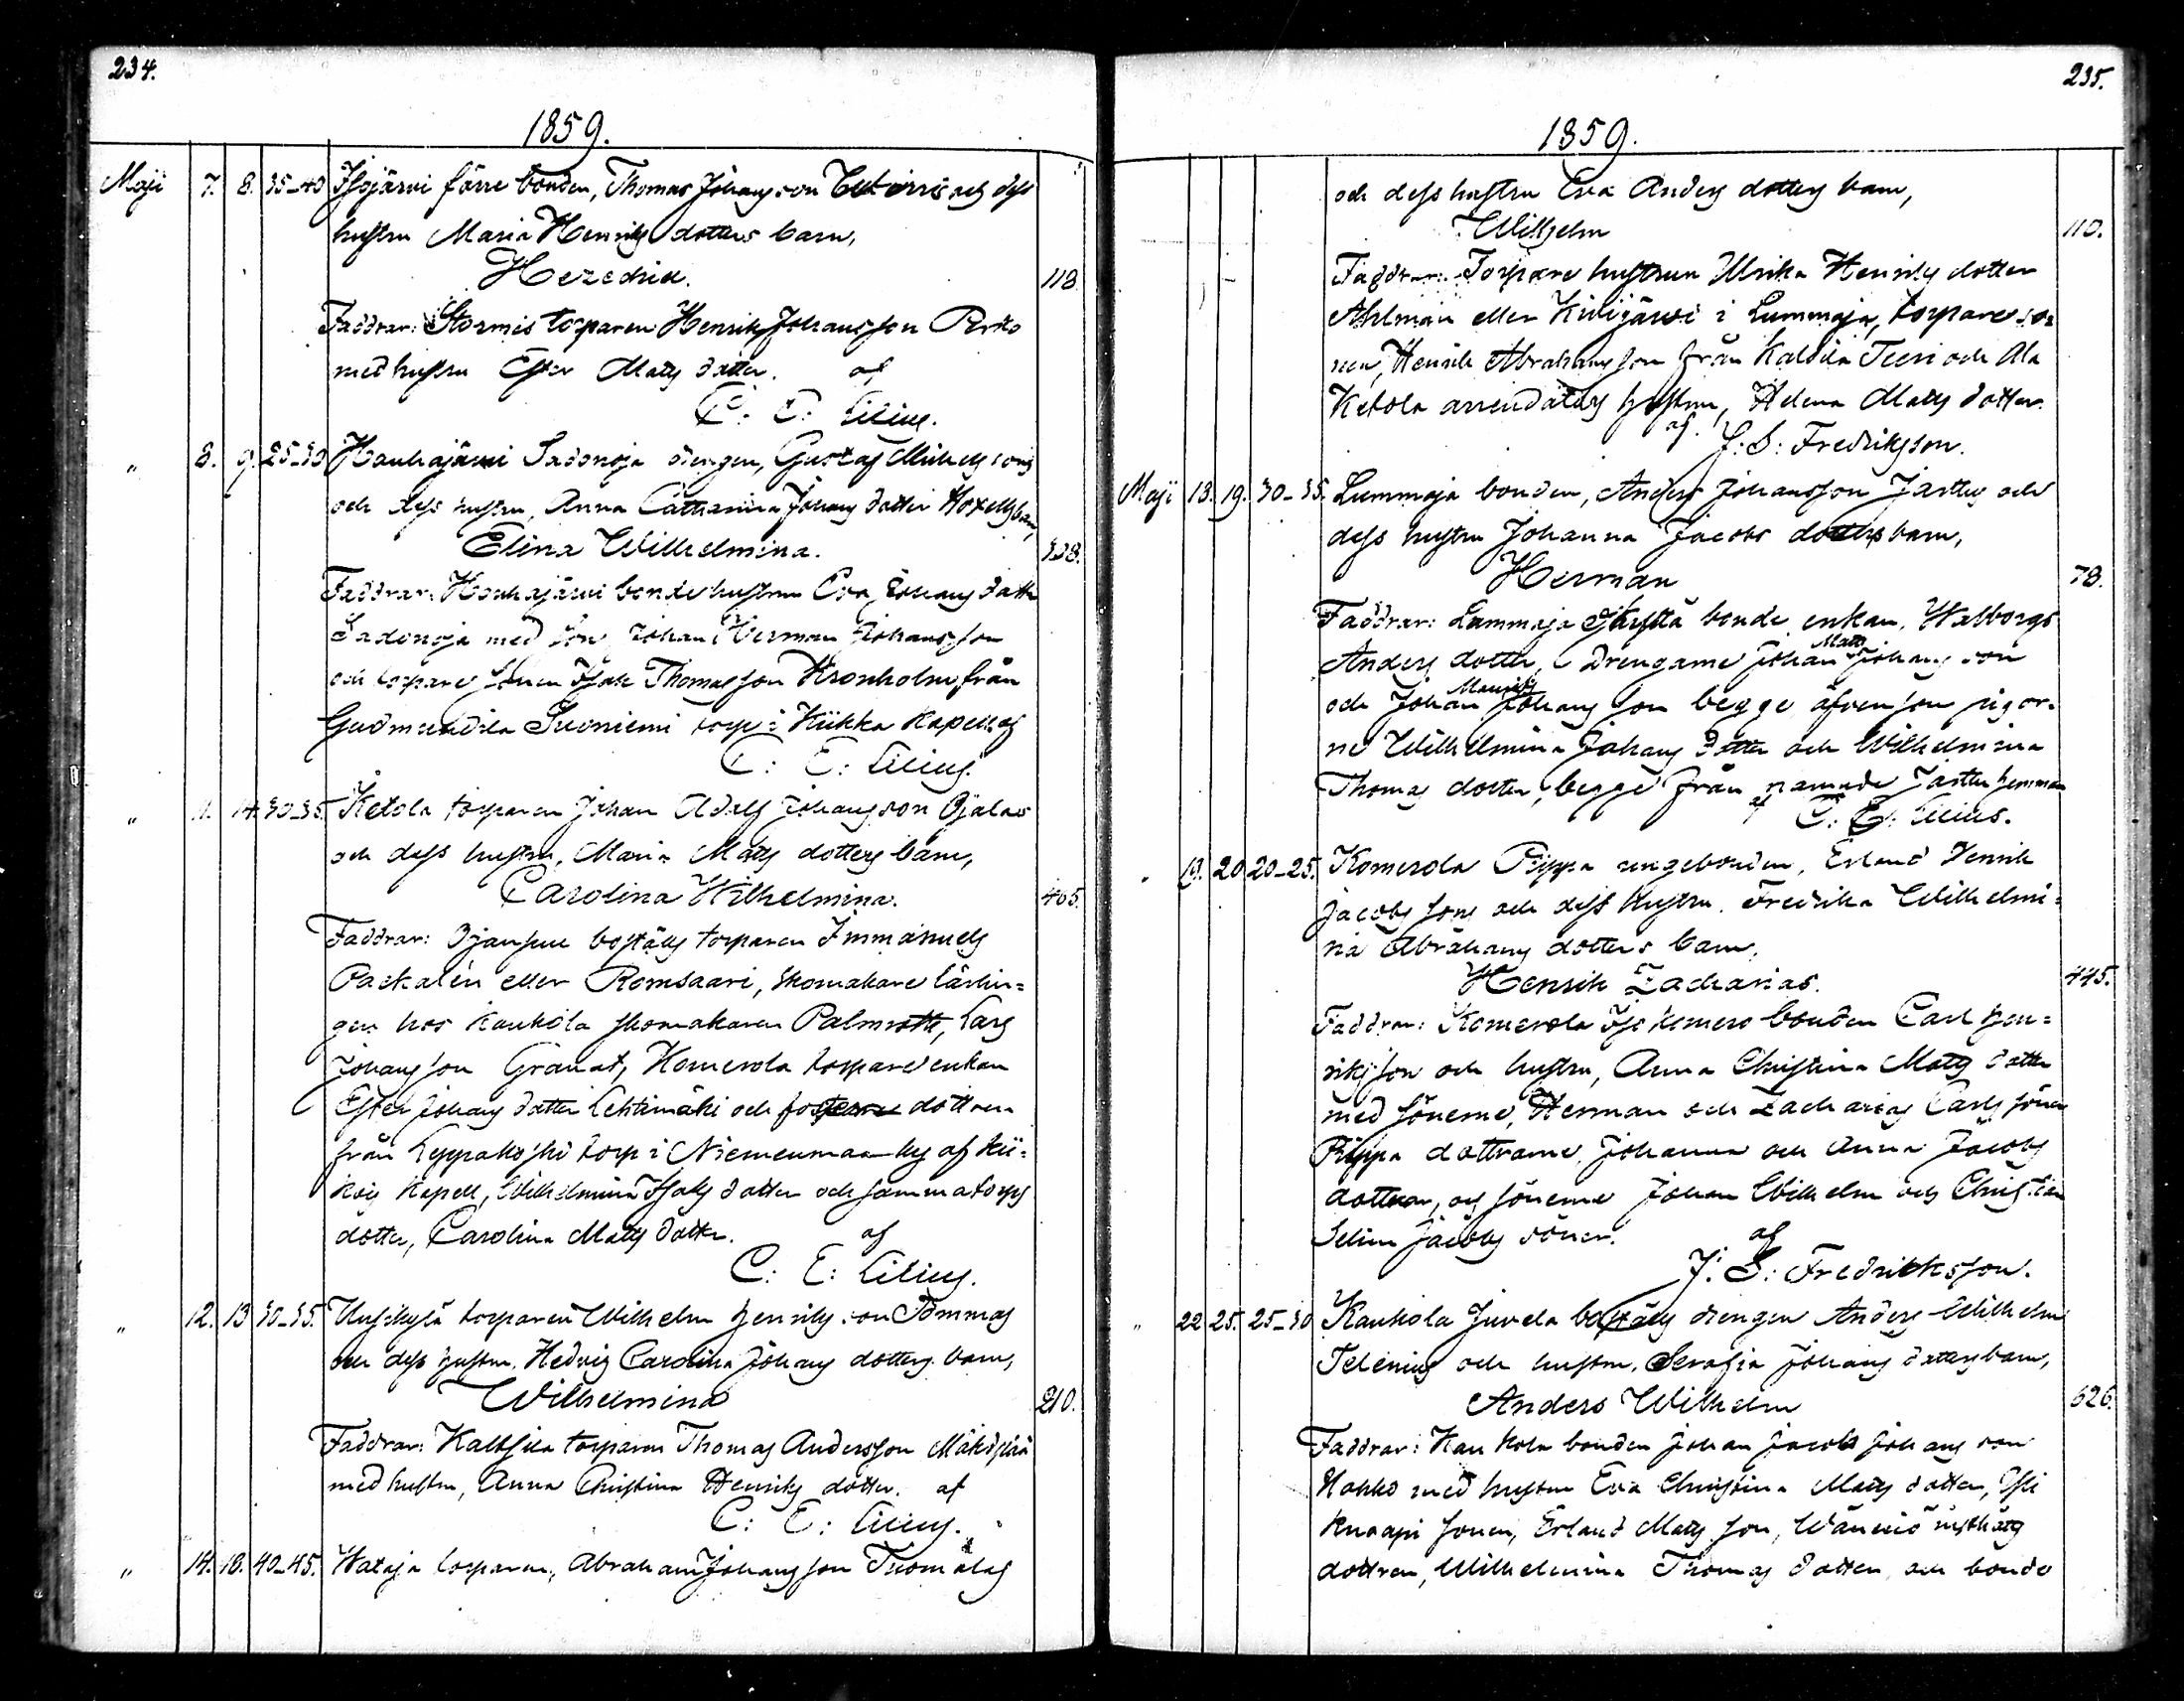 234.
1859.
Maji 7. 8. 35-40 Isojärvi förre bonden, Thomas Johansson och dess
hustru Maria Henriks dotters barn,
118
Faddrar: Stormis torparen Henrik Johansson Perko
med hustru Ester Mats dotter. af
C: E: Lilius.
" 8. 9. 25-30 Houhajärvi Sadonoja drengen, Gustaf Michels sons
och dess hustru, Anna Catharina Johans dotter Hoxells barn,
Elina Wilhelmina. 328.
Faddrar: Houhajärvi bondehustrun Eva Johans dotter
Sadonoja med son Johan Herman Johansson
och torpare sonen Isak Thomasson Kronholm från
Gudmundila Suoniemi torp i Kiikka Kapell af
C: E: Lilius.
" 11. 14. 30-35. Ketola torparen Johan Adolf Johansson Ojalas
och dess hustru, Maria Mats dotters barn,
Carolina Wilhelmina. 405.
Faddrar: Ojansuu boställs torparen Immanuels
Packalén eller Romsaari, skomakare lärlin=
gen hos Kaukola skomakaren Palmroth, Lars
Johansson Granat, Komerola torpareenkan
Ester Johans dotter Lehtimäki och dottren
från Leppakoski torp i Niemenmaa by af Kii=
kois Kapell, Wilhelmina Isaks dotter och samma torps
dotter, Carolina Mats dotter. af
C: E: Lilius.
" 12. 13 30-35. torparen Wilhelm Henriks son Tommas
och dess hustru, Hedvig Carolina Johans dotters barn,
Wilhelmina 210.
Faddrar: Kaltsila torparen Thomas Andersson
med hustru, Anna Christina Henriks dotter. af
C: E: Lilius.
" 14. 18. 40-45. Wataja torparen, Abraham Johansson Tuomolas
235.
1859.
och dess hustru Eva Anders dotters barn,
Wilhelm 110.
Faddrar: Torpare hustrun Ulrika Henriks dotter
Ahlman eller Kivijärvi i Lummaja, torpareso=
nen, Henrik Abrahamsson från Kaldila Teeri och Ala
Ketola arrendators hustru, Helena Mats dotter.
af J: S: Fredriksson.
Maji 13. 19. 30-35. Lummaja bonden, Anders Johansson Jaettes och
dess hustru Johanna Jacobs dotters barn,
Herman 78.
Faddrar: Lummaja bonde enkan, Walborgs
Anders dotter, Drengarne Johan Matts Johans son
och Johan Maurits Johans son begge äfvensom pigor=
ne Wilhelmina Johans dotter och Wilhelmina
Thomas dotter, begge från namnde hemman
af C: E: Lilius.
" 19. 20 20-25. Komerola Pippa ungebonden, Erland Henrik
Jacobs sons och dess hustru, Fredrika Wilhelmi=
na Abrahams dotters barn,
Henrik Zacharias. 445.
Faddrar: Komerola Iso Komero bonden Carl Hen=
riksson och hustru, Anna Christina Mats dotter
med sönerne, Herman och Zacharias Carls söner
Pippa dottrarne, Johanna och Anna Jacobs
dottrar, och sönerne Johan Wilhelm och Christian
Selim Jacobs söner. af
J: S: Fredriksson.
" 22 25. 25-30 Kaukola Juvela boställs drengen Anders Wilhelm
Telenius och hustru, Serafia Johans dotters barn,
Anders Wilhelm 626.
Faddrar: Kaukola bonden Johan Jacob Johans son
Nohko med hustru Eva Christina Mats dotter,
Knaapi sonen, Erland Mats son,
dottren, Wilhelmina Thomas dotter och bonde